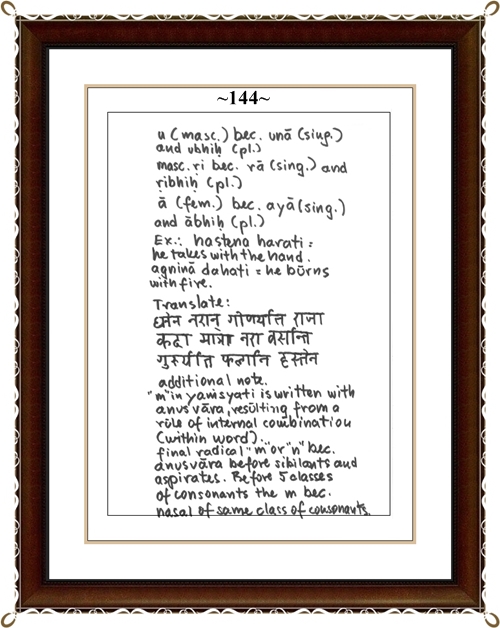 ~144~
u (masc.) bec. unā (sing.)
and ubhiḥ (pl.)
masc. ri bec. rā (sing.) and
ribhiḥ (pl.)
ā (fem.) bec. ayā (sing.)
and ābhiḥ (pl.)
Ex.: hastena harati =
he takes with the hand.
agninā dahati = he burns
with fire.
Translate:
नरान् राजा
कदा नरा
हस्तेन
additional note.
"m" in yaṁsyati is written with
anusvāra, resulting from a
rule of internal combination
(within word).
final radical "m" or "n" bec.
anusvāra before sibilants and
aspirates. Before 5 classes
of consonants the m bec.
nasal of same class of consonants.